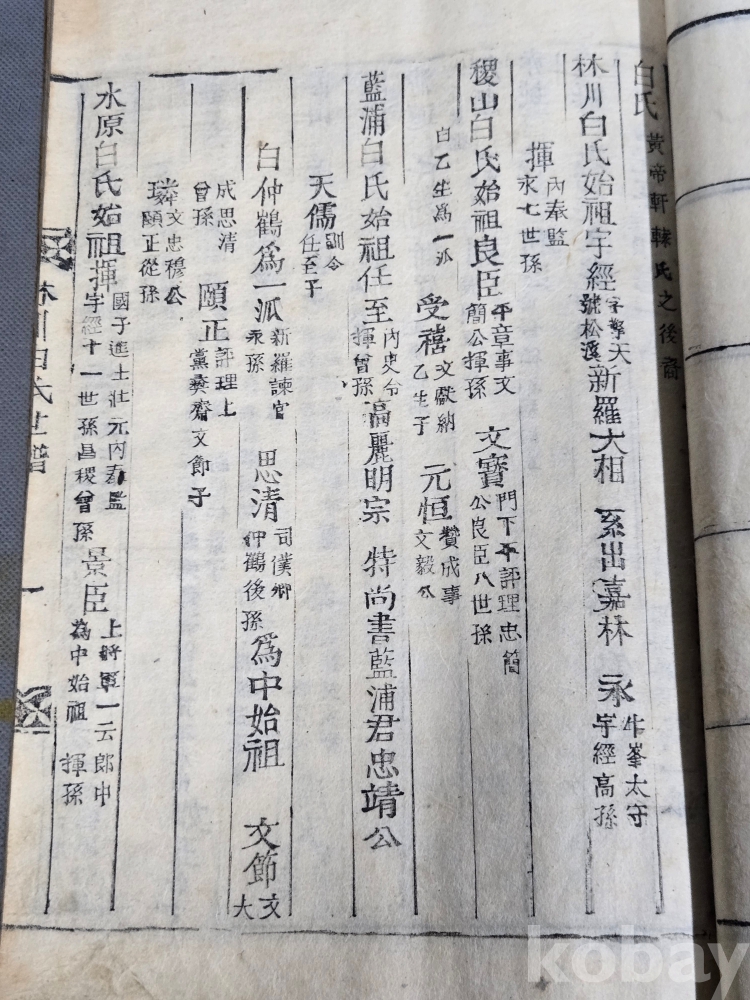 白氏 黃帝軒轅氏之後裔
林川白氏始祖宇經 字擎天 號松溪 新羅大相 系出嘉林 永 牛峯太守 宇經高孫
揮 內奉監 永七世孫
稷山白氏始祖良臣 平章事文 簡公揮孫 文寶 門下平評理忠簡 公良臣八世孫
白乙生爲一派 受禧 文獻納 乙生子 元恒 贊成事 文毅公
藍浦白氏始祖任至 內史令 揮曾孫 高麗明宗 特尚書藍浦君忠靖公
天儒 訓令 任至子
白仲鶴爲一派 新羅諫官 永孫 思清 司僕卿 仲鶴後孫 爲中始祖 文節 文大
成思清 曾孫 頤正 評理上 黨彛齋文節子
璘 文忠穆公 頤正從孫
水原白氏始祖揮 國子進士壯元內奉監 宇經十一世孫昌稷曾孫 景臣 上將軍一云郎中 為中始祖 揮孫
林川白氏世譜 一
kobay